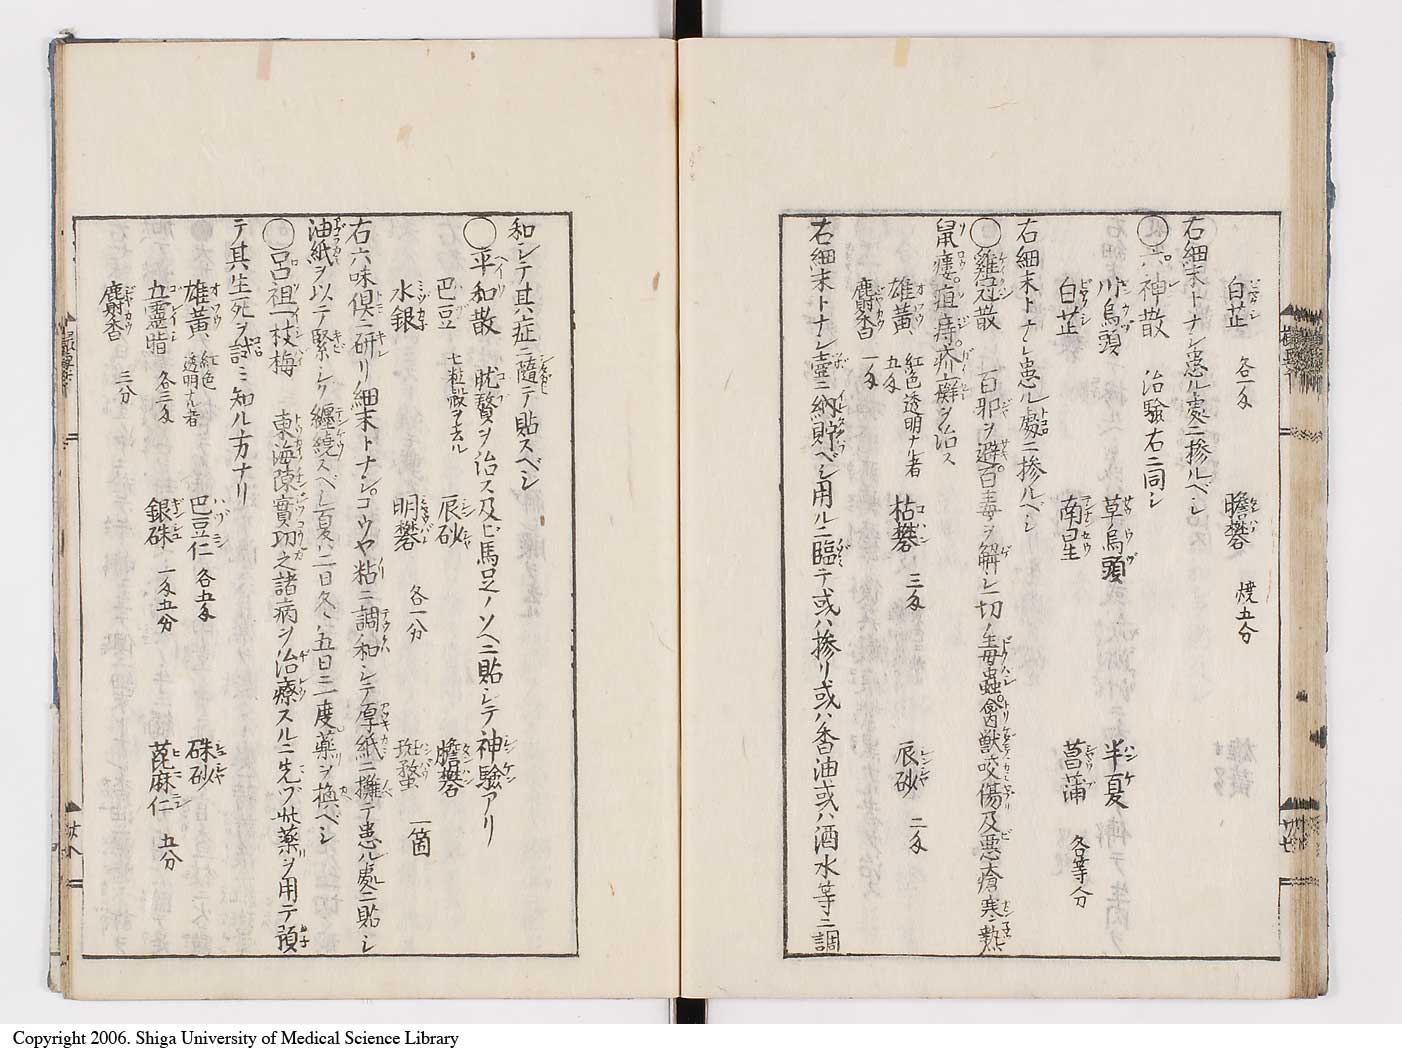 白芷 各一匁 膽礬 焼五分
右細末トナシ患ル處ニ摻ルベシ
○六神散 治驗右ニ同シ
川烏頭 草烏頭 半夏
白芷 南星 菖蒲 各等分
右細末トナシ患ル處ニ摻ルベシ
○雞冠散 百邪ヲ避百毒ヲ解シ一切ノ毒蟲禽獸咬傷及悪瘡寒熱
鼠瘻疽痔疥癬ヲ治ス
雄黃 紅色透明ナル者五匁 枯礬 三匁 辰砂 二匁
麝香 一匁
右細末トナシ壷ニ納貯ベシ用ルニ臨テ或ハ摻リ或ハ香油或ハ酒水等ニ調
和シテ其症ニ隨テ貼スベシ
○平和散 肬贅ヲ治ス及ビ馬足ノソヘニ貼シテ神驗アリ
巴豆 七粒殻ヲ去ル 辰砂 膽礬
水銀 明礬 各一分 斑蝥 一箇
右六味倶ニ研リ細末トナシコウヤ粘ニ調和シテ厚紙ニ攤テ患ル處ニ貼シ
油紙ヲ以テ緊シク纏繞スベシ夏ハ二日冬ハ五日ニ一度藥ヲ換ベシ
○呂祖一枝梅 東海陳實功之諸病ヲ治療スルニ先ヅ此藥ヲ用テ預
テ其生死ヲ試ミ知ル方ナリ
雄黃 紅色透明ナル者 巴豆仁 各五匁 硃砂
五靈脂 各三匁 銀硃 一匁五分 蓖麻仁 五分
麝香 三分
Copyright 2006. Shiga University of Medical Science Library